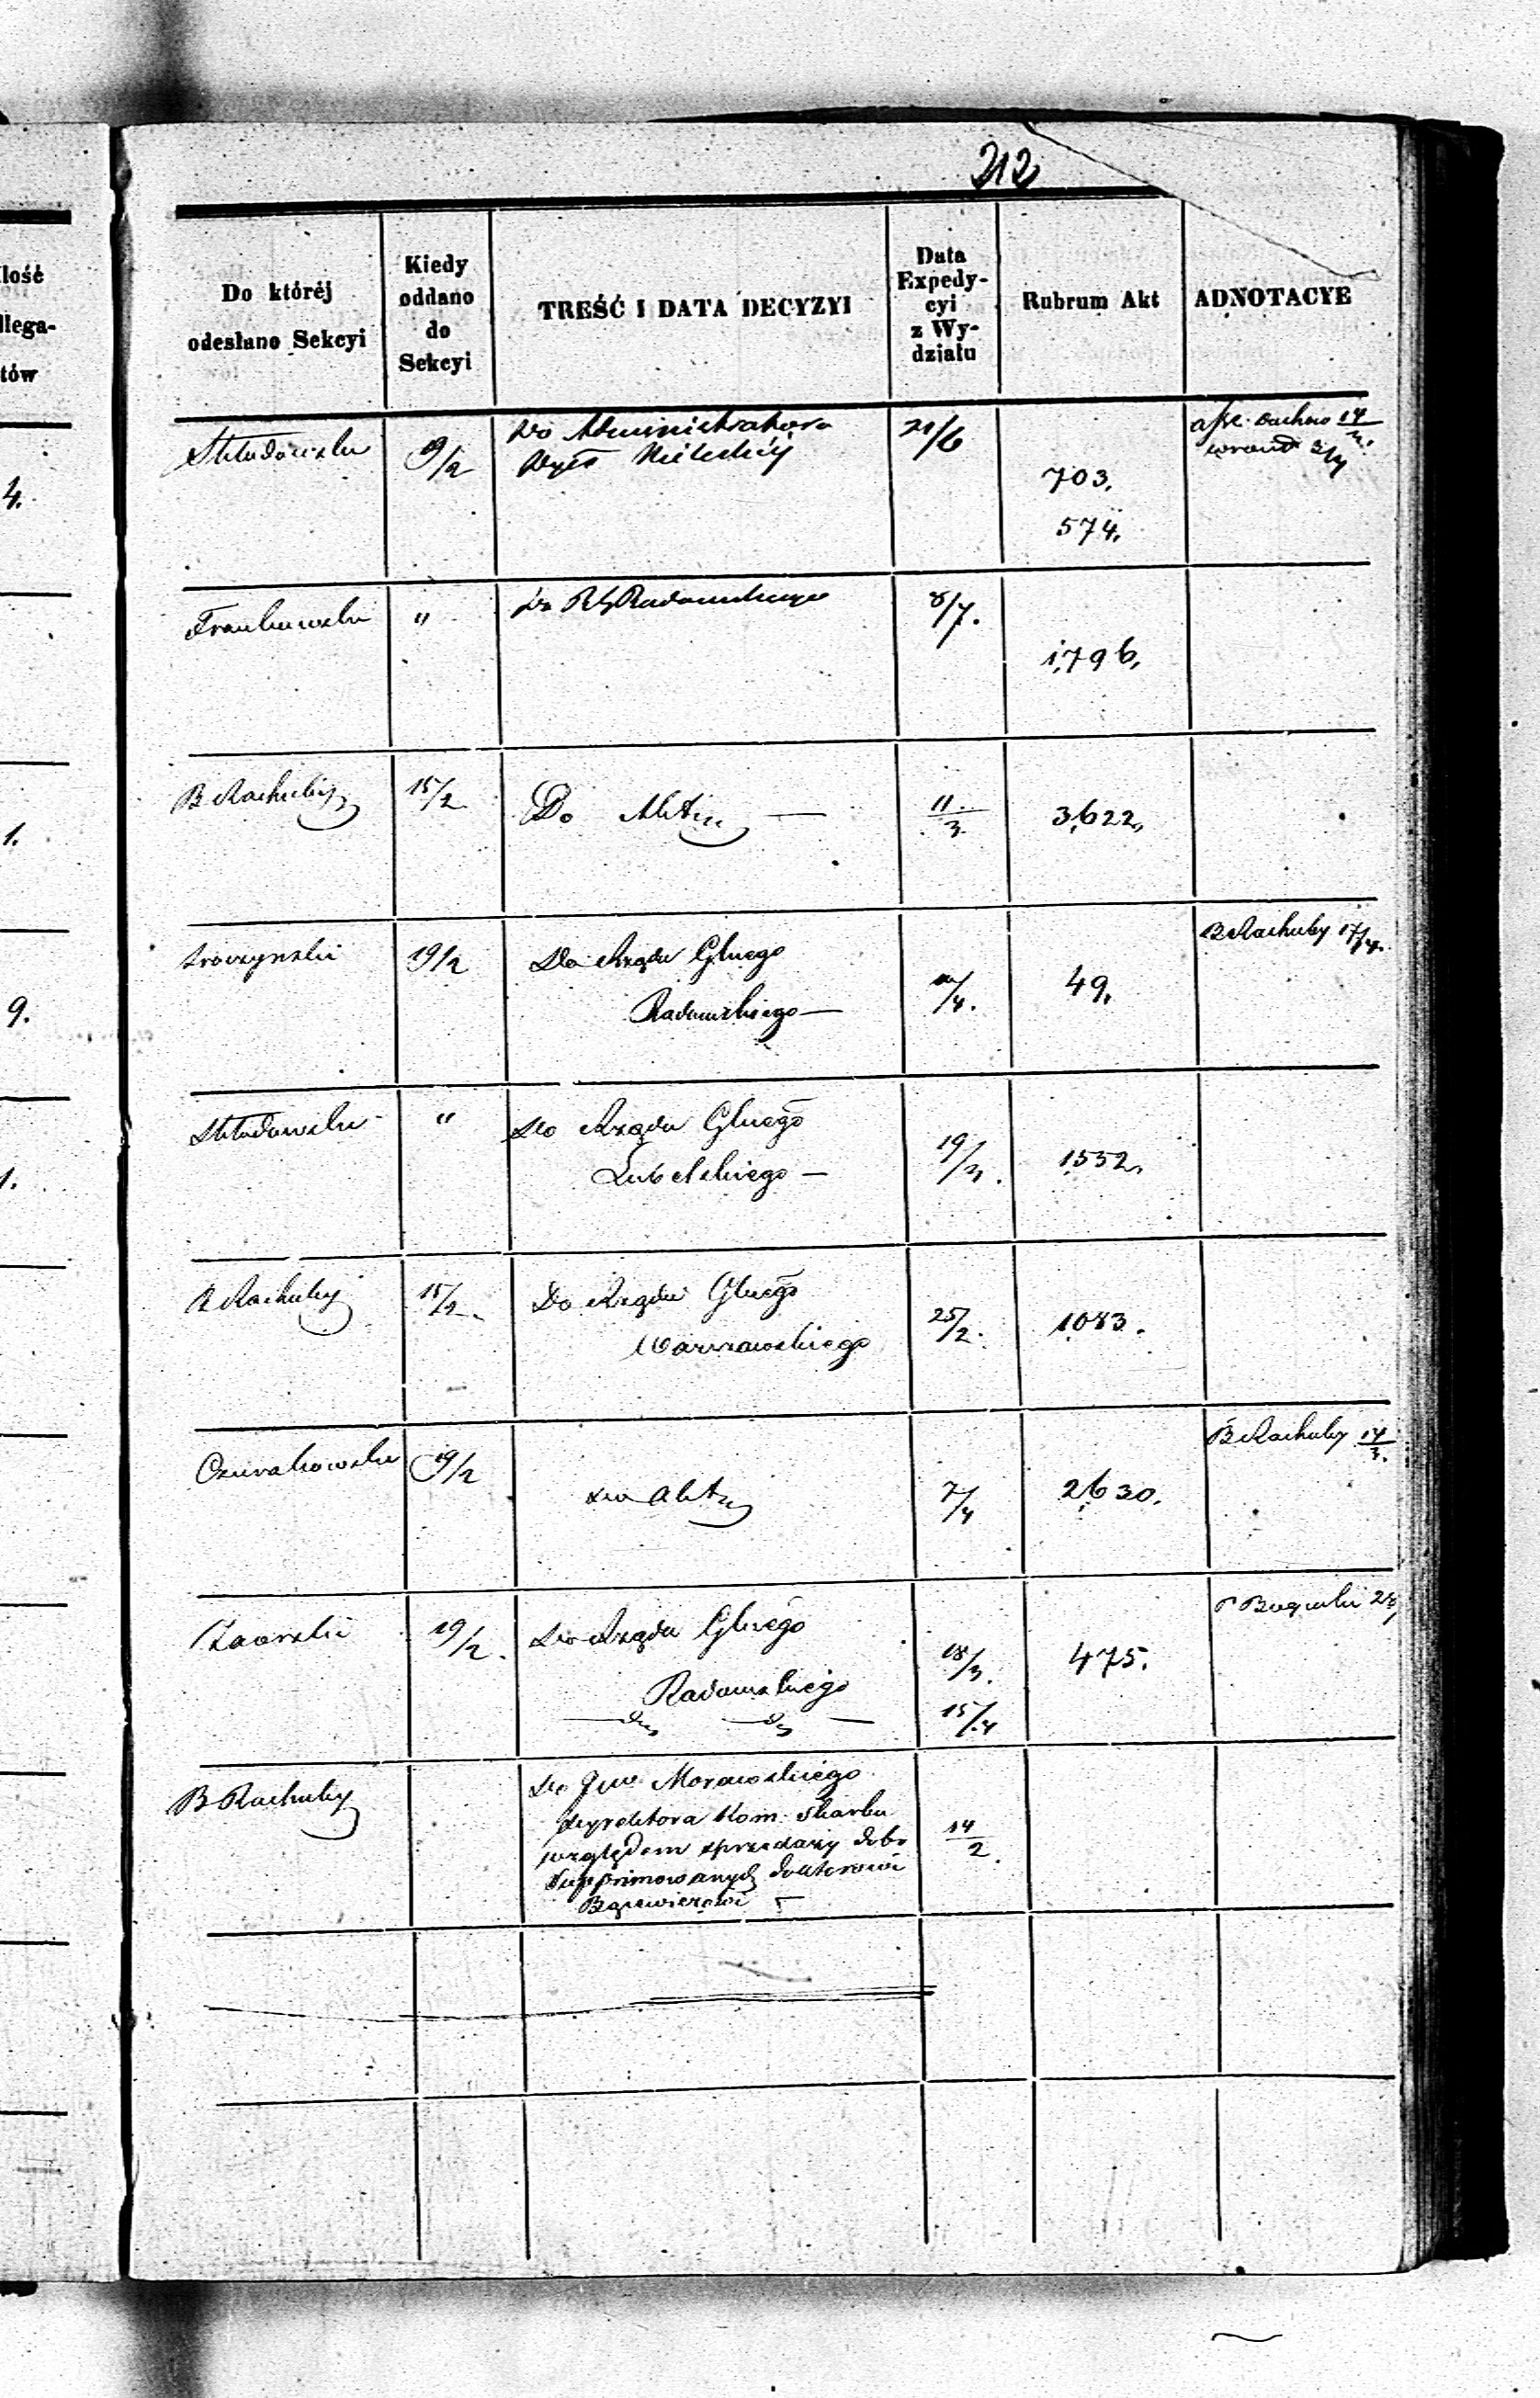 212
Ilość
llega-
tów
4.
1.
9.
1.
Do któréj
odesłano Sekcyi
Kiedy
oddano
do
Sekcyi
TREŚĆ I DATA DECYZYI
Data
Expedy-
cyi
z Wy-
działu
Rubrum Akt
ADNOTACYE
Skłodowski
19/2
Do Administratora
Dyec Kieleckiéj
21/6
703.
574.
14
Frankowski
"
Do RG Radomskiego
8/7.
1,796.
B Rachuby
15/2
Do Akt
11
3
3,622,
19/2
Do Rządu Glnego
Radomskiego —
/4.
49.
B Rachuby 17/4.
Skłodowski
"
Do Rządu Glnego
Lubelskiego —
19/3.
1532.
B Rachuby
15/2.
Do Rządu Glnego
Warszawskiego
25/2.
1083.
19/2
do akt
7/4
2630.
B Rachuby 14
3.
Zaorski
19/2.
Do Rządu Glnego
Radomskiego
18/3.
15/4
475.
B Rachuby
Do Jwo Morawskiego
Dyrektora Kom. Skarbu
względem sprzedaży dobr
suprimowanych doktorowi
14
2.